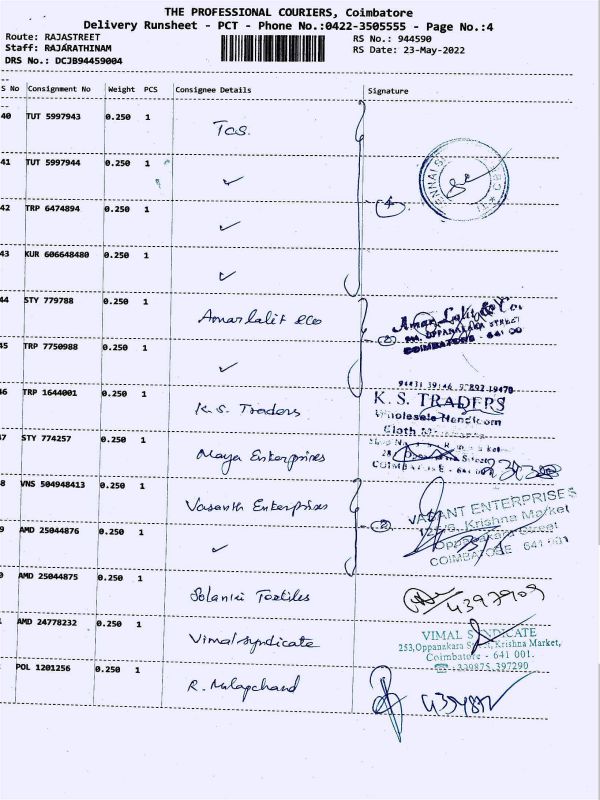 THE PROFESSIONAL COURIERS, Coimbatore
Delivery Runsheet - PCT - Phone No.:0422-3505555 - Page No.:4
Route: RAJASTREET RS No.: 944590
Staff: RAJARATHINAM RS Date: 23-May-2022
DRS No.: DCJB94459004
S No Consignment No Weight PCS Consignee Details Signature
40 TUT 5997943 0.250 1 TCS.
41 TUT 5997944 0.250 1 ✓
42 TRP 6474894 0.250 1 ✓ 4
43 KUR 606648480 0.250 1 ✓
44 STY 779788 0.250 1 Amarlalit &co Amar Lalit & Co.
OPPANAKARA STREET
COIMBATORE - 641 00
45 TRP 7750988 0.250 1 ✓ 2
46 TRP 1644001 0.250 1 K.S. Traders
K. S. TRADERS
Wholesale Handloom
Cloth
7 STY 774257 0.250 1 Maya Enterprises
COIMBATORE - 641 00
8 VNS 504948413 0.250 1 Vasanth Enterprises 2
ENTERPRISES
Krishna Market
Oppanakara Street
COIMBATORE 641 001
9 AMD 25044876 0.250 1 ✓
0 AMD 25044875 0.250 1 Solanki Textiles 4397909
AMD 24778232 0.250 1 Vimal syndicate
VIMAL SYNDICATE
253,Oppanakara Street,Krishna Market,
Coimbatore - 641 001.
397290
POL 1201256 0.250 1 R. Mulapchand